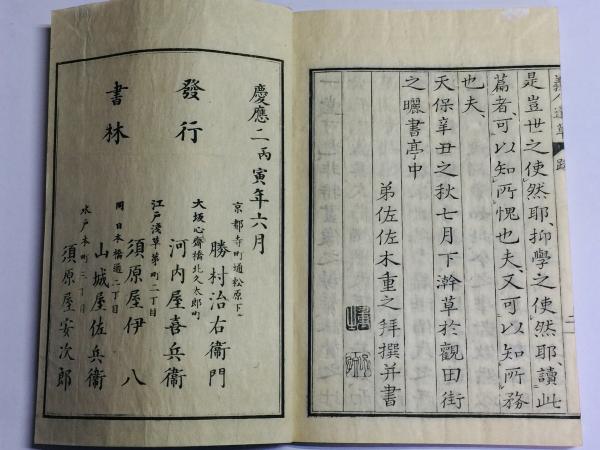 是豈世之使然耶、抑學之使然耶、讀此
篇者、可以知所愧也夫、又可以知所務
也夫、
天保辛丑之秋七月下澣草於觀田街
之曬書亭中
弟佐佐木重之拜撰并書
慶應二丙寅年六月
發行
書林
京都寺町通松原下
勝村治右衞門
大坂心齋橋北久太郎町
河内屋喜兵衞
江戸淺草茅町二丁目
須原屋伊八
同日本橋通二丁目
山城屋佐兵衞
水戸本町三丁目
須原屋安次郎